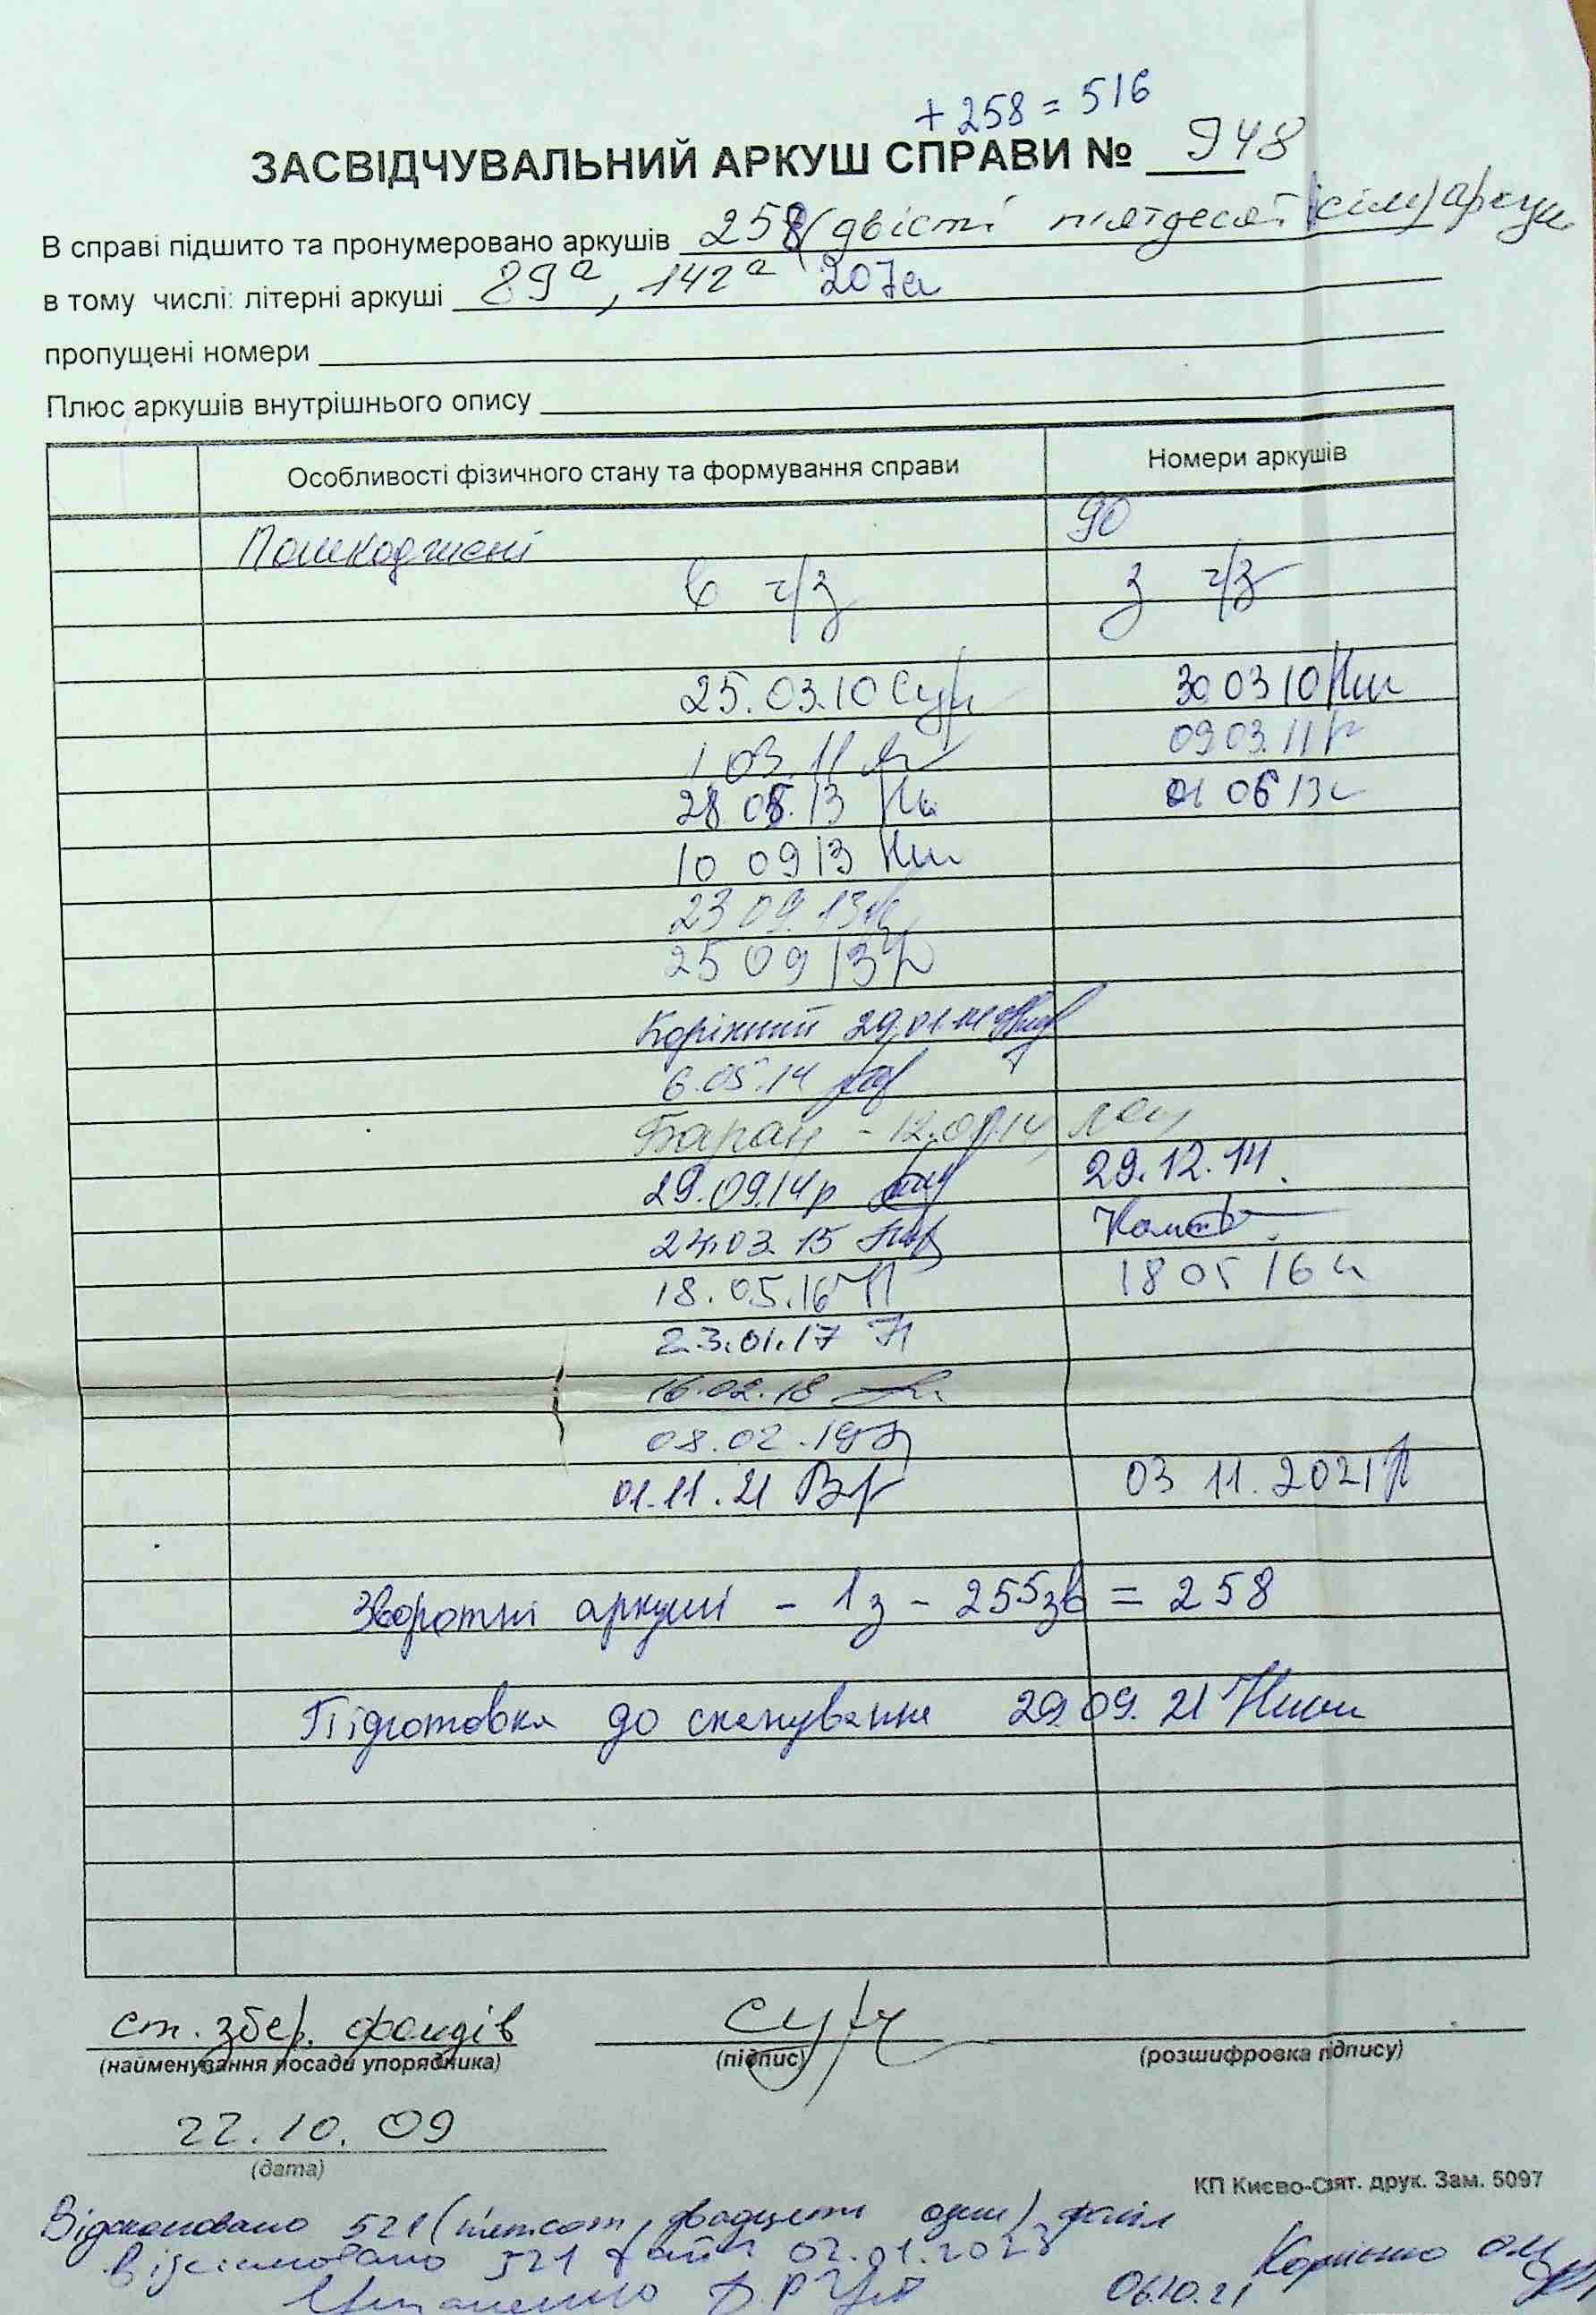 + 258 = 516
ЗАСВІДЧУВАЛЬНИЙ АРКУШ СПРАВИ № 948
В справі підшито та пронумеровано аркушів 258 (двісті пятдесят сім) аркуш
в тому числі: літерні аркуші 89а, 142а 207а
пропущені номери
Плюс аркушів внутрішнього опису
Особливості фізичного стану та формування справи Номери аркушів
Пошкоджені 90
в ч/з з ч/з
25.03.10 30 03 10
1.03.11 09 03.11
28 05.13 01 06 13
10 09 13
23 09.13
25 09 13
29.01.14
6.05.14
Баран - 12.
29.09.14р 29.12.14.
24.03 15
18.05.16 18 05 16
23.01.17
16.02.18
08.02.19
01.11.21 03 11.2021
Зворотні аркуші - 1з - 255зв = 258
Підготовка до сканування 29.09.21
ст. збер. фондів
(найменування посади упорядника) (підпис) (розшифровка підпису)
22.10.09
(дата)
КП Києво-Свят. друк. Зам. 5097
Відскановано 521 (п'ятсот двадцять один) файл
521 файл 02.01.2023
06.10.21